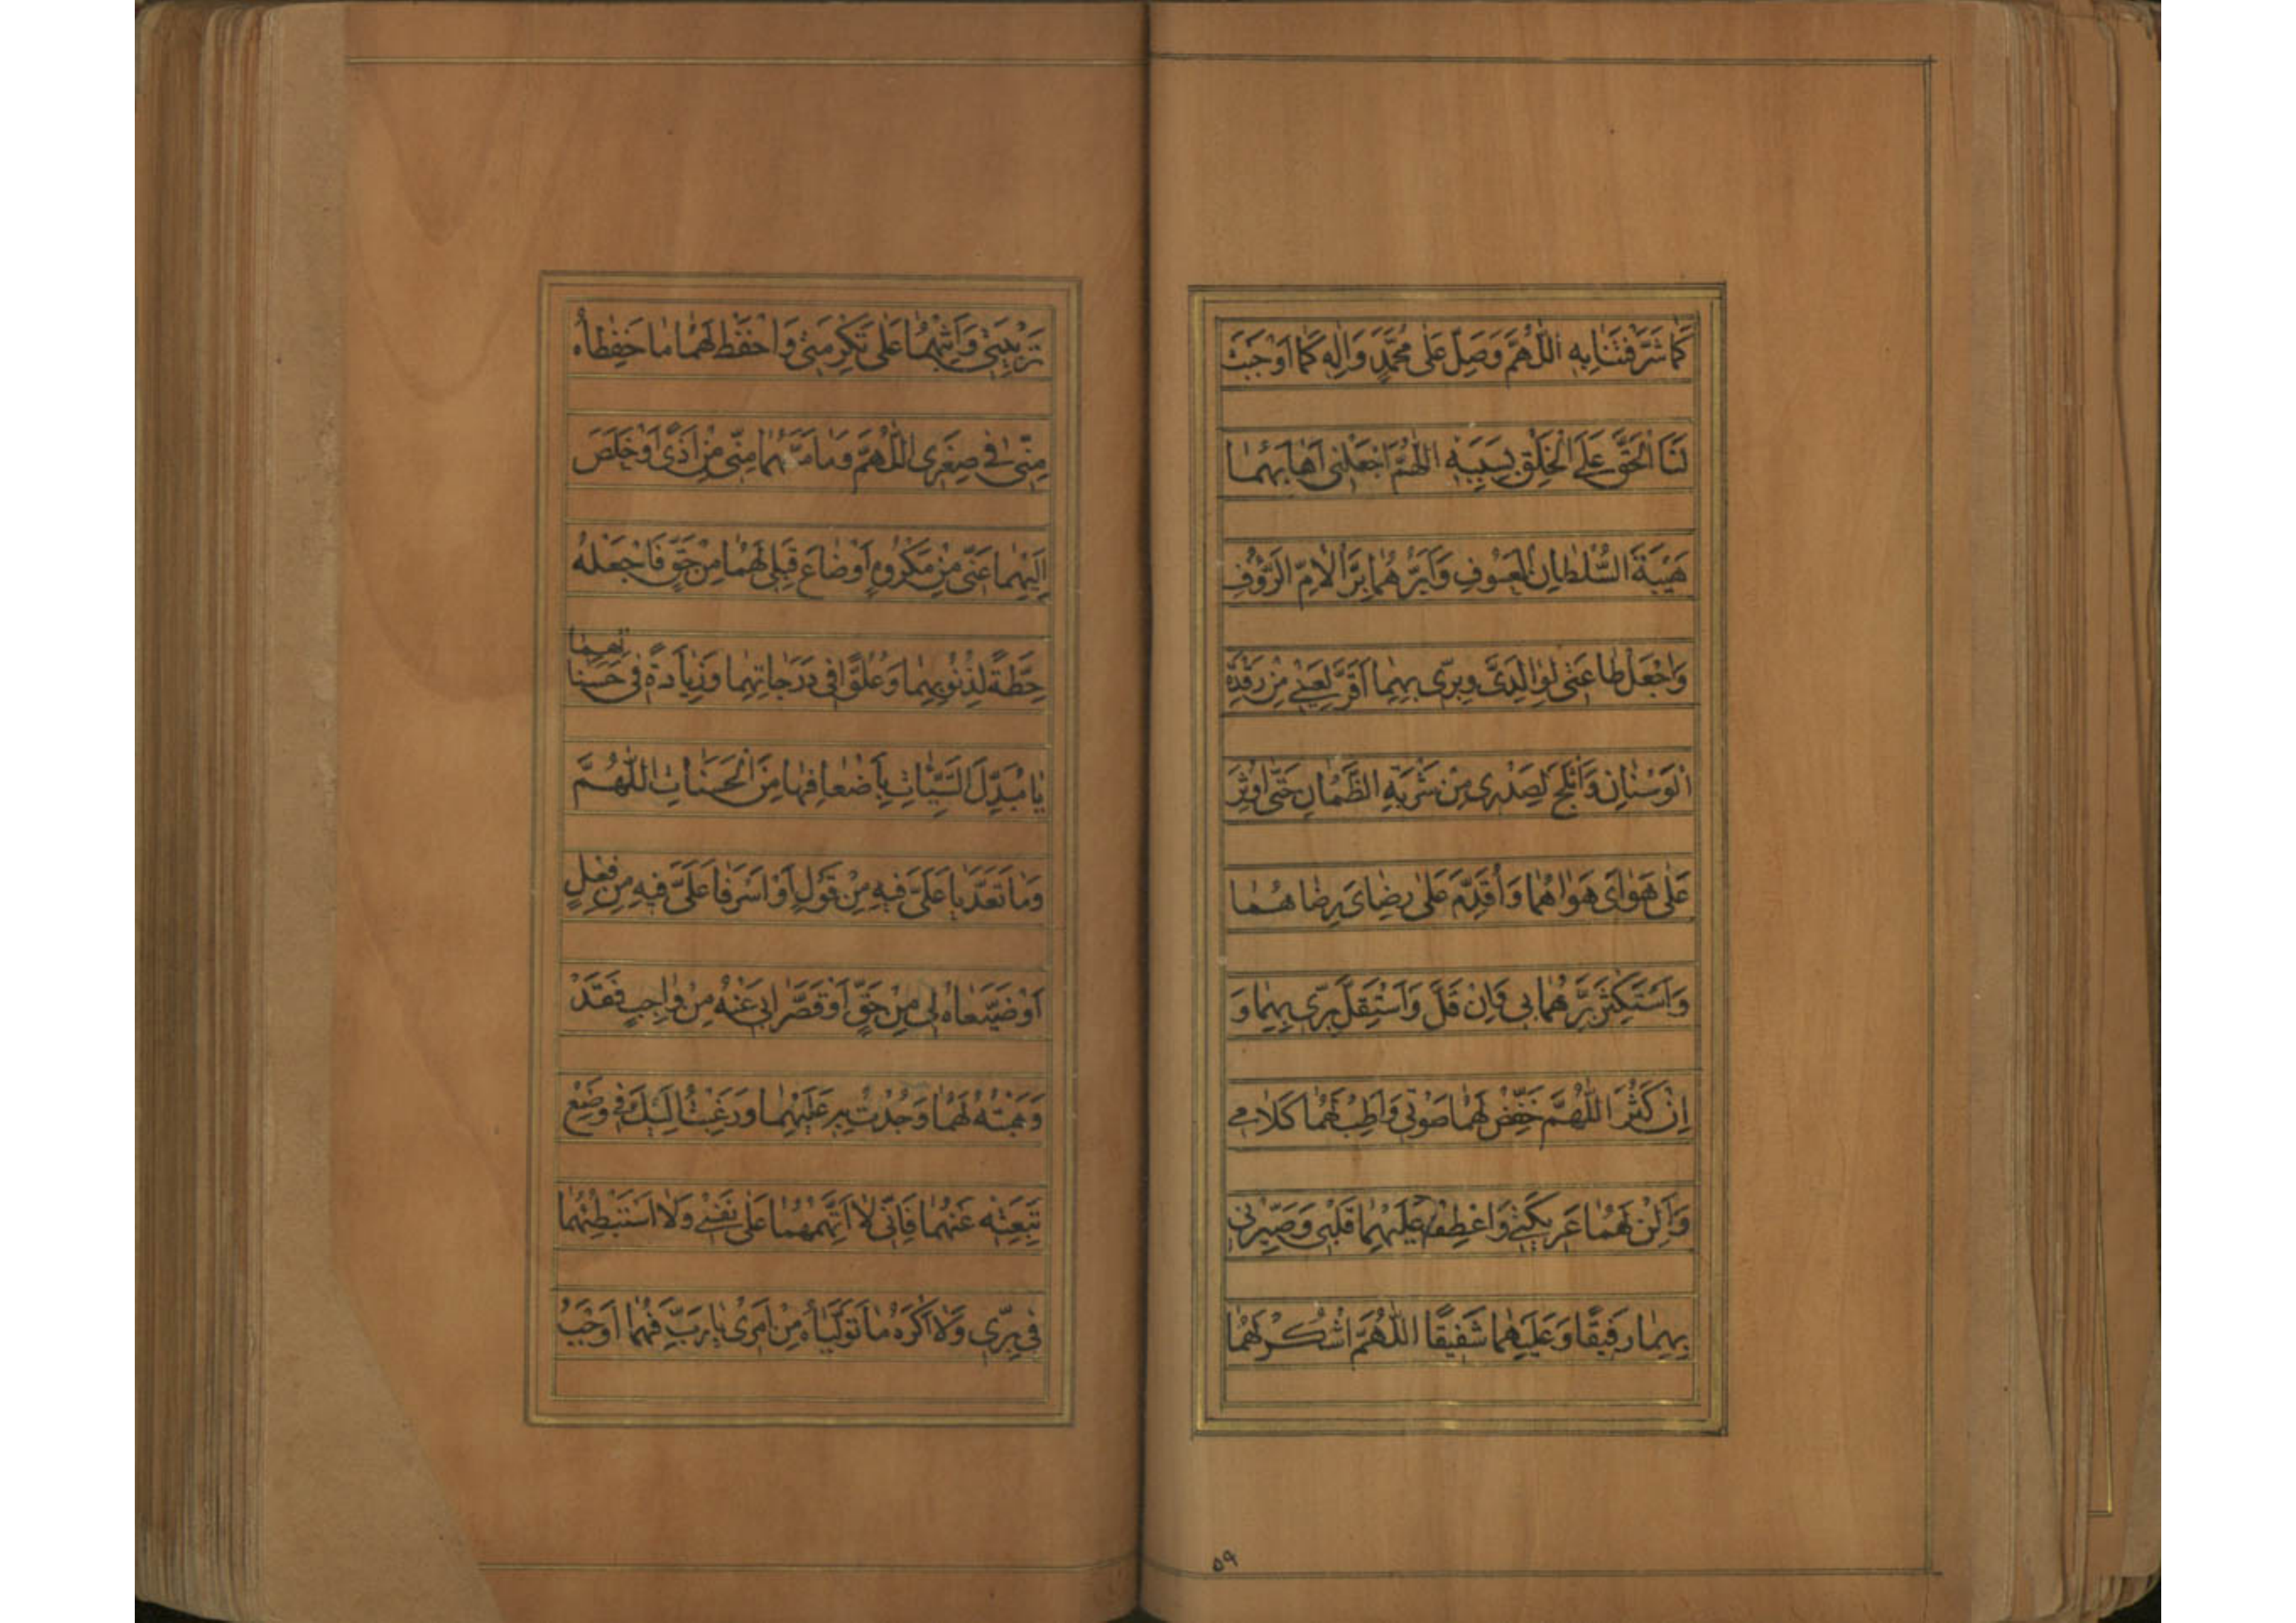 كَمَا شَرَّفْتَنَا بِهِ اَللّٰهُمَّ وَصَلِّ عَلٰى مُحَمَّدٍ وَاٰلِهِ كَمَا اَوْجَبْتَ
لَنَا الْحَقَّ عَلَى الْخَلْقِ بِسَبَبِهِ اَللّٰهُمَّ اجْعَلْنِى اَهَابُهُمَا
هَيْبَةَ السُّلْطَانِ الْعَسُوفِ وَاَبَرُّهُمَا بِرَّ الْاُمِّ الرَّؤُفِ
وَاجْعَلْ طَاعَتِى لِوَالِدَىَّ وَبِرِّى بِهِمَا اَقَرَّ لِعَيْنِى مِنْ رَقْدَةِ
الْوَسْنَانِ وَاَثْلَجَ لِصَدْرِى مِنْ شَرْبَةِ الظَّمْاٰنِ حَتّٰى اُوثِرَ
عَلٰى هَوَاىَ هَوَاهُمَا وَاُقَدِّمَ عَلٰى رِضَاىَ رِضَاهُمَا
وَاَسْتَكْثِرَ بِرَّهُمَا بِى وَاِنْ قَلَّ وَاَسْتَقِلَّ بِرِّى بِهِمَا وَ
اِنْ كَثُرَ اَللّٰهُمَّ خَفِّضْ لَهُمَا صَوْتِى وَاَطِبْ لَهُمَا كَلَامِى
وَاَلِنْ لَهُمَا عَرِيكَتِى وَاعْطِفْ عَلَيْهِمَا قَلْبِى وَصَيِّرْنِى
بِهِمَا رَفِيقًا وَعَلَيْهِمَا شَفِيقًا اَللّٰهُمَّ اشْكُرْ لَهُمَا
٥٩
تَرْبِيَتِى وَاَثِبْهُمَا عَلٰى تَكْرِمَتِى وَاحْفَظْ لَهُمَا مَا حَفِظَاهُ
مِنِّى فِى صِغَرِى اَللّٰهُمَّ وَمَا مَسَّهُمَا مِنِّى مِنْ اَذًى اَوْ خَلَصَ
اِلَيْهِمَا عَنِّى مِنْ مَكْرُوهٍ اَوْ ضَاعَ قِبَلِى لَهُمَا مِنْ حَقٍّ فَاجْعَلْهُ
حِطَّةً لِذُنُوبِهِمَا وَعُلُوًّا فِى دَرَجَاتِهِمَا وَزِيَادَةً فِى حَسَنَاتِهِمَا
يَا مُبَدِّلَ السَّيِّئَاتِ بِاَضْعَافِهَا مِنَ الْحَسَنَاتِ اَللّٰهُمَّ
وَمَا تَعَدَّيَا عَلَىَّ فِيهِ مِنْ قَوْلٍ اَوْ اَسْرَفَا عَلَىَّ فِيهِ مِنْ فِعْلٍ
اَوْ ضَيَّعَاهُ لِى مِنْ حَقٍّ اَوْ قَصَّرَا بِى عَنْهُ مِنْ وَاجِبٍ فَقَدْ
وَهَبْتُهُ لَهُمَا وَجُدْتُ بِهِ عَلَيْهِمَا وَرَغِبْتُ اِلَيْكَ فِى وَضْعِ
تَبِعَتِهِ عَنْهُمَا فَاِنِّى لَا اَتَّهِمُهُمَا عَلٰى نَفْسِى وَلَا اَسْتَبْطِئُهُمَا
فِى بِرِّى وَلَا اَكْرَهُ مَا تَوَلَّيَاهُ مِنْ اَمْرِى يَا رَبِّ فَهُمَا اَوْجَبُ